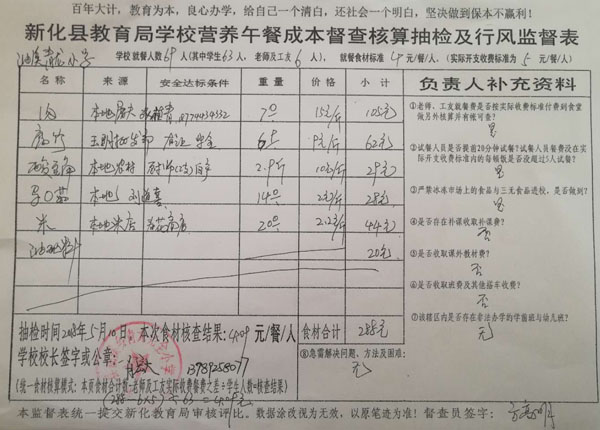 百年大计，教育为本，良心办学，给自己一个清白，还社会一个明白，坚决做到保本不赢利！
新化县教育局学校营养午餐成本督查核算抽检及行风监督表
学校 就餐人数69人(其中学生63人，老师及工友6人)，就餐食材标准4元/餐/人，(实际开支收费标准为5元/餐/人)
名称 来源 安全达标条件 数量 价格 小计 负责人补充资料
肉 本地屠夫 7斤 15元/斤 105元
王明批发部 62元
本地农村 2.9斤 10元/斤 29元
本地 14斤 2元/斤 28元
米 本地米店 20斤 2.2元/斤 44元
油 20元
①老师、工友就餐费是否按实际收费标准付到食堂做另外核算并有帐可查？
是
②试餐人员是否提前20分钟试餐？试餐人员餐费没在实际开支收费标准内的每顿饭是否没超过5人试餐？
是
③严禁冰冻市场上的食品与三无食品进校，是否做到？
是
④是否存在补课收取补课费？
否
⑤是否收取课外教材费？
否
⑥是否收取班费及其他搭车收费？
否
⑦该辖区内是否存在非法办学的学前班与幼儿班？
无
抽检时间2018年5月10日 本次食材核查结果：4.09元/餐/人 食材合计 288元
学校校长签字或公章： 13789258077
⑧急需解决问题、方法及困难：
无
(统一食材核算模式：本页食材合计数-老师及工友实际收费餐费之差÷学生人数=核查结果)
(288-6×5)÷63=4.09元
本监督表统一提交新化教育局审核评比。数据涂改视为无效，以原笔迹为准！督查员签字：